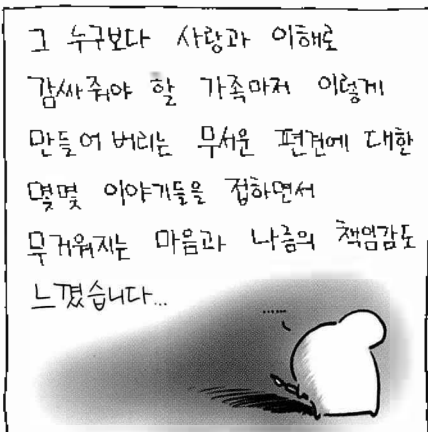 그 누구보다 사랑과 이해로
감싸줘야 할 가족마저 이렇게
만들어 버리는 무서운 편견에 대한
몇몇 이야기들을 접하면서
무거워지는 마음과 나름의 책임감도
느꼈습니다...
......